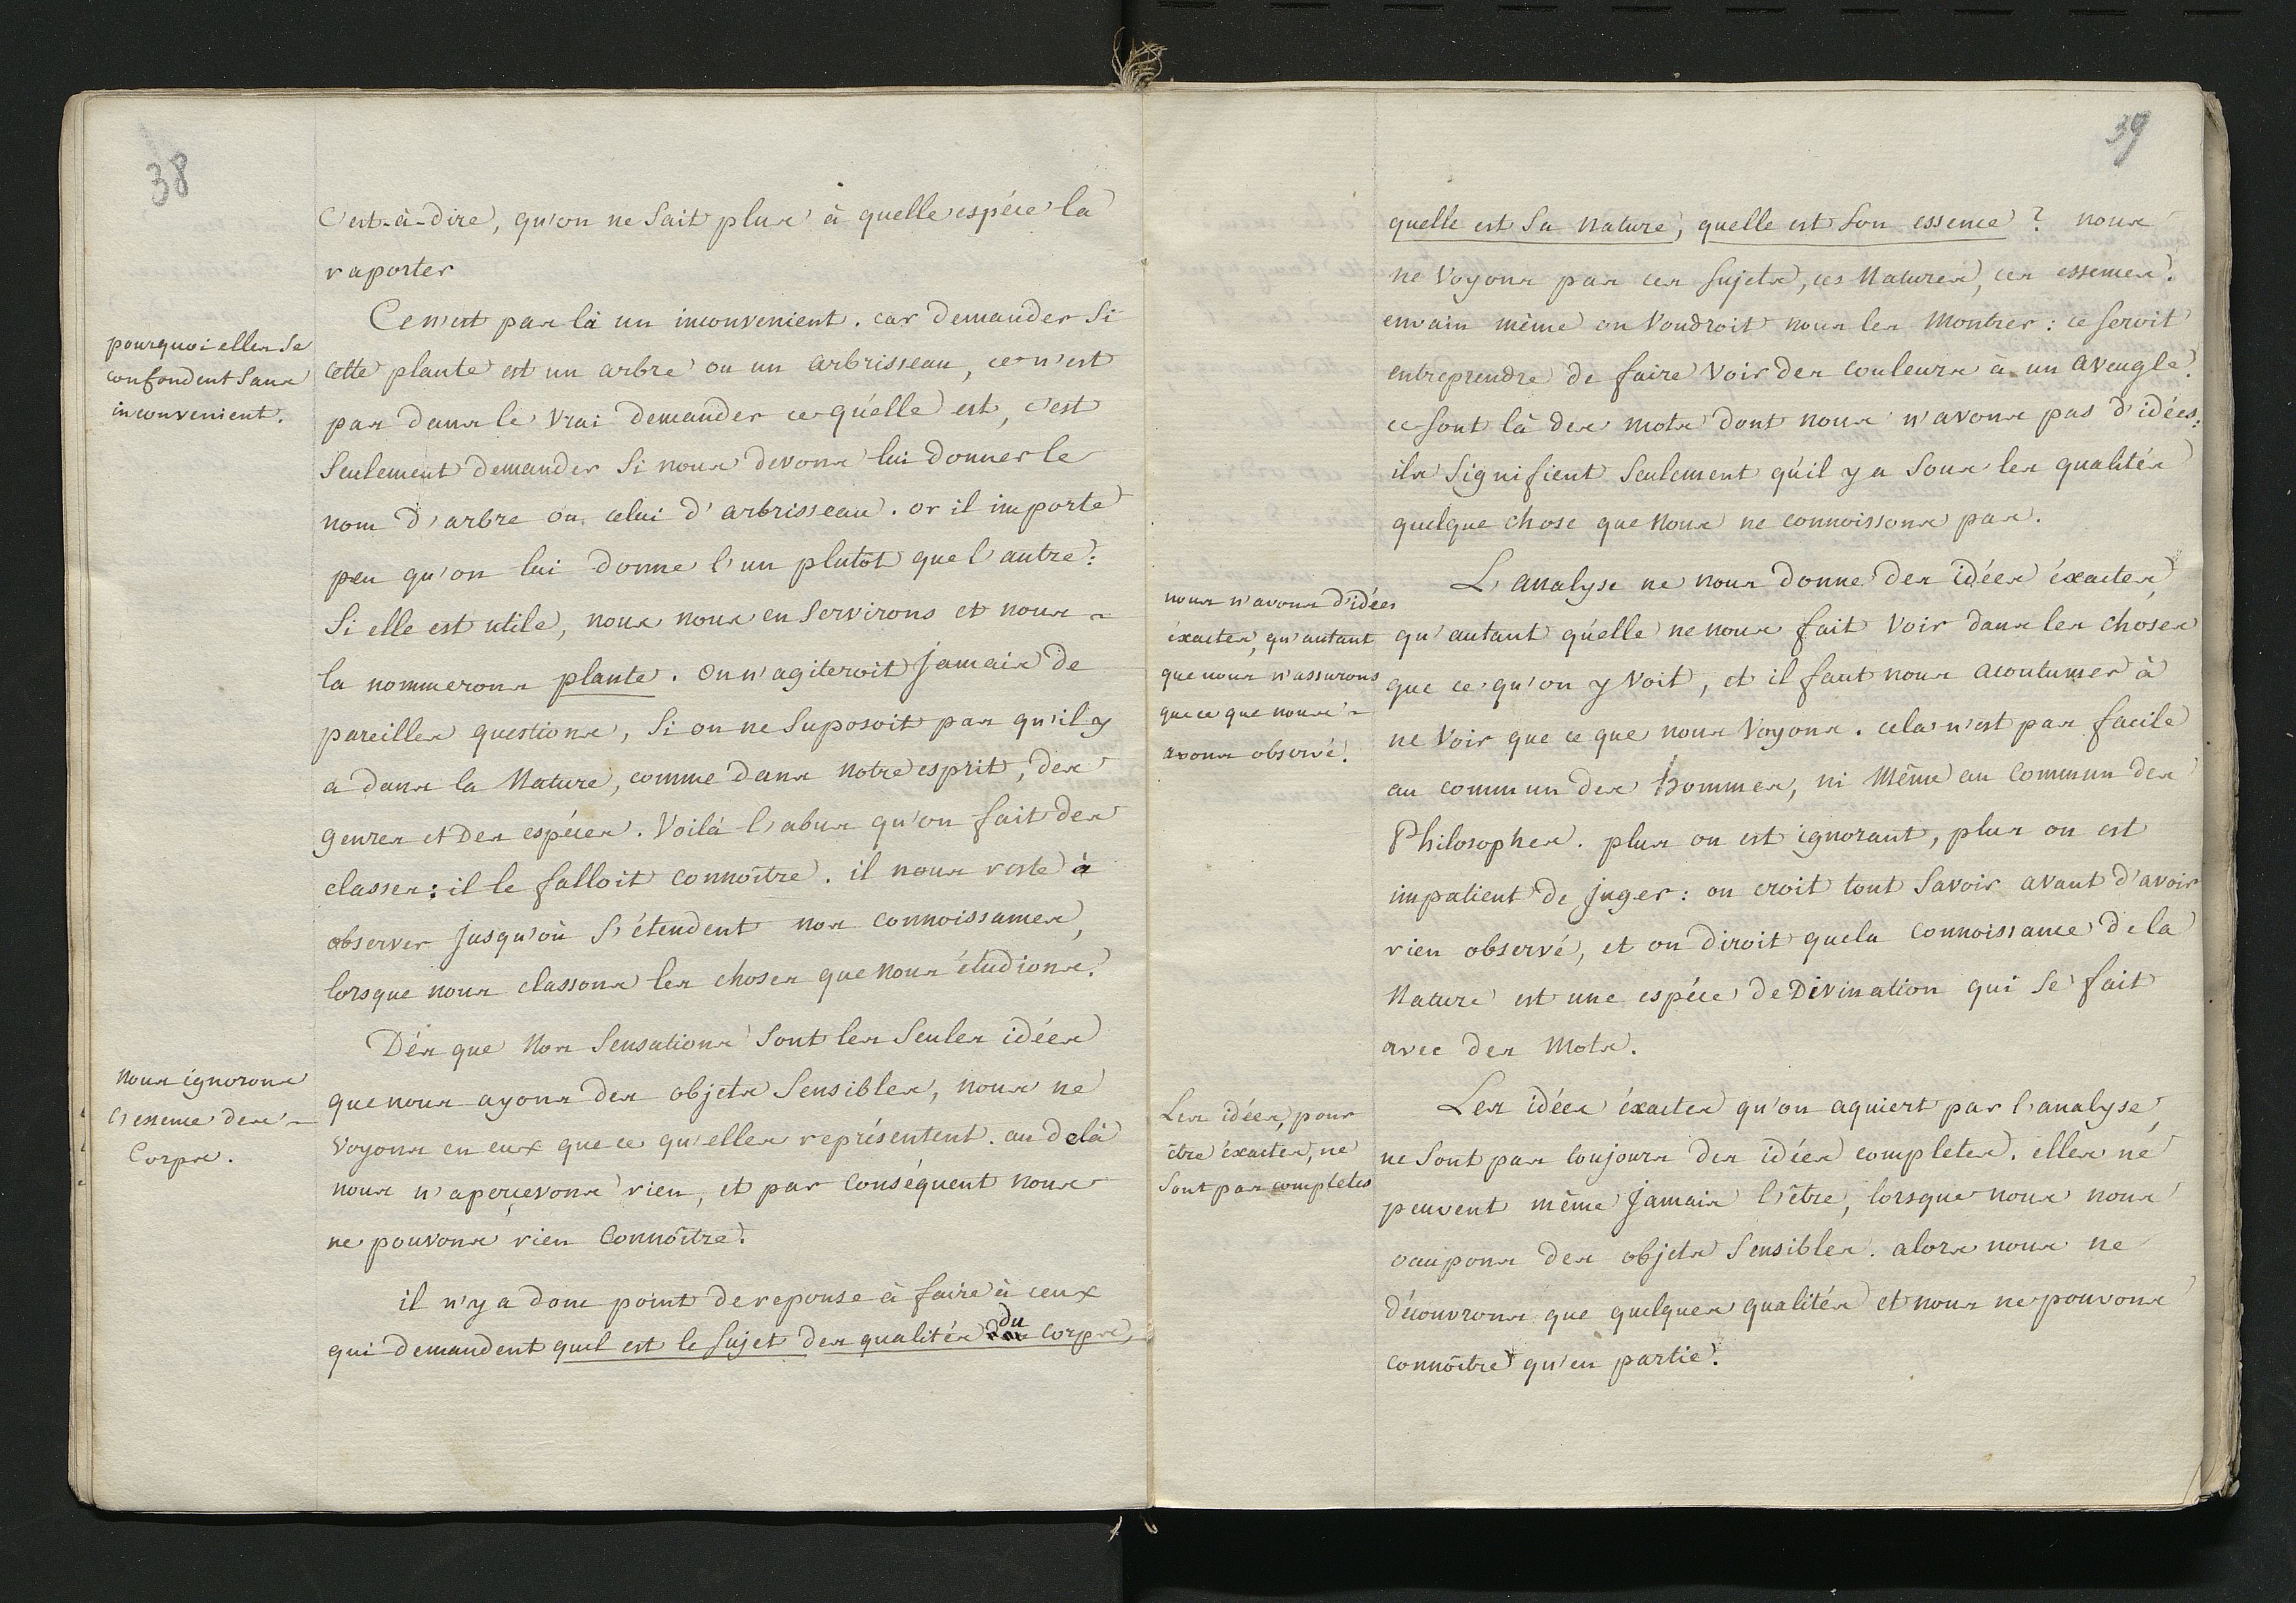 38
C'est-à-dire, qu'on ne sait plus à quelle espéce la
raporter
pourquoi elles se
confondent sans
inconvenient.
Ce n'est pas là un inconvenient. car demander si
cette plante est un arbre ou un arbrisseau, ce n'est
pas dans le vrai demander ce qu'elle est, c'est
seulement demander si nous devons lui donner le
nom d'arbre ou celui d'arbrisseau. or il importe
peu qu'on lui donne l'un plutôt que l'autre:
si elle est utile, nous nous en servirons et nous
la nommerons plante. on n'agiteroit jamais de
pareilles questions, si on ne suposoit pas qu'il y
a dans la Nature, comme dans notre esprit, des
genres et des espéces. Voilà l'abus qu'on fait des
classes: il le falloit connoître. il nous reste à
observer jusqu'où s'étendent nos connoissances,
lorsque nous classons les choses que nous étudions.
nous ignorons
l'essence des
Corps.
Dés que nos sensations sont les seules idées
que nous ayons des objets sensibles, nous ne
voyons en eux que ce qu'elles représentent. au delà
nous n'apercevons rien, et par conséquent nous
ne pouvons rien connoître.
il n'y a donc point de reponse à faire à ceux
qui demandent quel est le sujet des qualités du corps,
39
quelle est sa nature, quelle est son essence? nous
ne voyons pas ces sujets, ces Natures, ces essences.
envain même on voudroit nous les montrer: ce seroit
entreprendre de faire voir des couleurs à un aveugle.
ce sont là des mots dont nous n'avons pas d'idées:
ils signifient seulement qu'il y a sous les qualités
quelque chose que nous ne connoissons pas.
nous n'avons d'idées
éxactes, qu'autant
que nous n'assurons
que ce que nous
avons observé.
L'analyse ne nous donne des idées éxactes,
qu'autant qu'elle ne nous fait voir dans les choses
que ce qu'on y voit, et il faut nous acoutumer à
ne voir que ce que nous voyons. cela n'est pas facile
au commun des hommes, ni même au commun des
Philosophes. plus on est ignorant, plus on est
impatient de juger: on croit tout savoir avant d'avoir
rien observé, et on diroit que la connoissance de la
Nature est une espéce de Divination qui se fait
avec des mots.
Les idées, pour
être éxactes, ne
sont pas completes
Les idées éxactes qu'on aquiert par l'analyse,
ne sont pas toujours des idées completes. elles ne
peuvent même jamais l'être, lorsque nous nous
ocupons des objets sensibles. alors nous ne
découvrons que quelques qualités et nous ne pouvons
connoître qu'en partie.